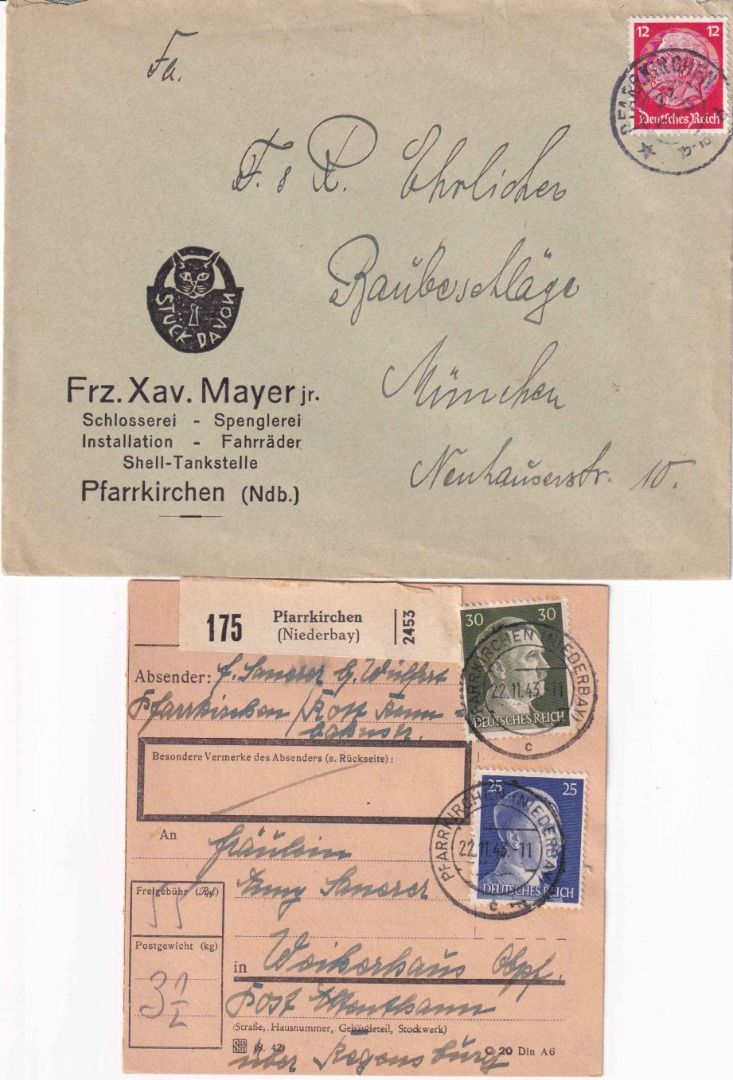 12 12
Deutsches Reich
PFARRKIRCHEN
Fa.
F. & R. Ehrlicher
Baubeschläge
München
Neuhauserstr. 10.
STÜCK DAVON
Frz. Xav. Mayer jr.
Schlosserei - Spenglerei
Installation - Fahrräder
Shell-Tankstelle
Pfarrkirchen (Ndb.)
175 Pfarrkirchen
(Niederbay) 2453
30 30
DEUTSCHES REICH
PFARRKIRCHEN (NIEDERBAY)
22.11.43.-11
c
Absender:
Pfarrkirchen
Besondere Vermerke des Absenders (s. Rückseite):
25 25
DEUTSCHES REICH
PFARRKIRCHEN (NIEDERBAY)
22.11.43.-11
c
An Fräulein
Freigebühr (Rpf)
55
Postgewicht (kg)
in
Post
(Straße, Hausnummer, Gebäudeteil, Stockwerk)
(8. 42) C 20 Din A6
über Regensburg